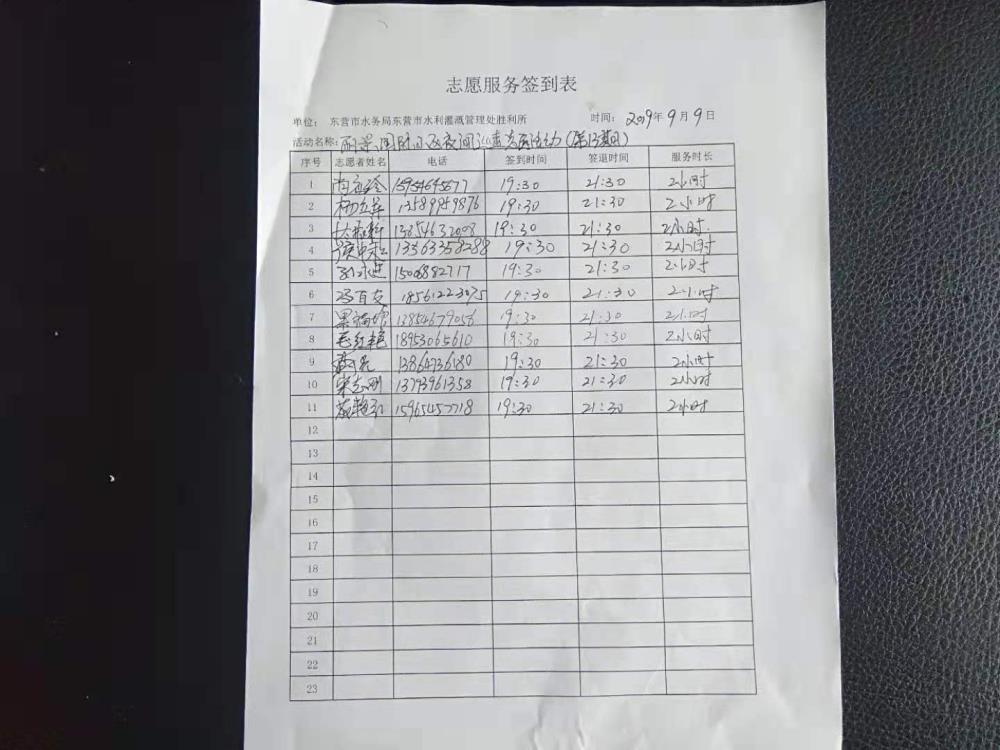 志愿服务签到表
单位: 东营市水务局东营市水利灌溉管理处胜利所 时间: 2019年9月9日
活动名称: 小区夜间巡查志愿活动(第13期)
序号 志愿者姓名 电话 签到时间 签退时间 服务时长
1 19:30 21:30 2小时
2 13589959876 19:30 21:30 2小时
3 19:30 21:30 2小时
4 13563358288 19:30 21:30 2小时
5 孙永进 19:30 21:30 2小时
6 冯百友 18561223075 19:30 21:30 2小时
7 13854679056 19:30 21:30 2小时
8 毛红艳 18953065610 19:30 21:30 2小时
9 13864736180 19:30 21:30 2小时
10 宋志刚 13793961358 19:30 21:30 2小时
11 15965457718 19:30 21:30 2小时
12
13
14
15
16
17
18
19
20
21
22
23